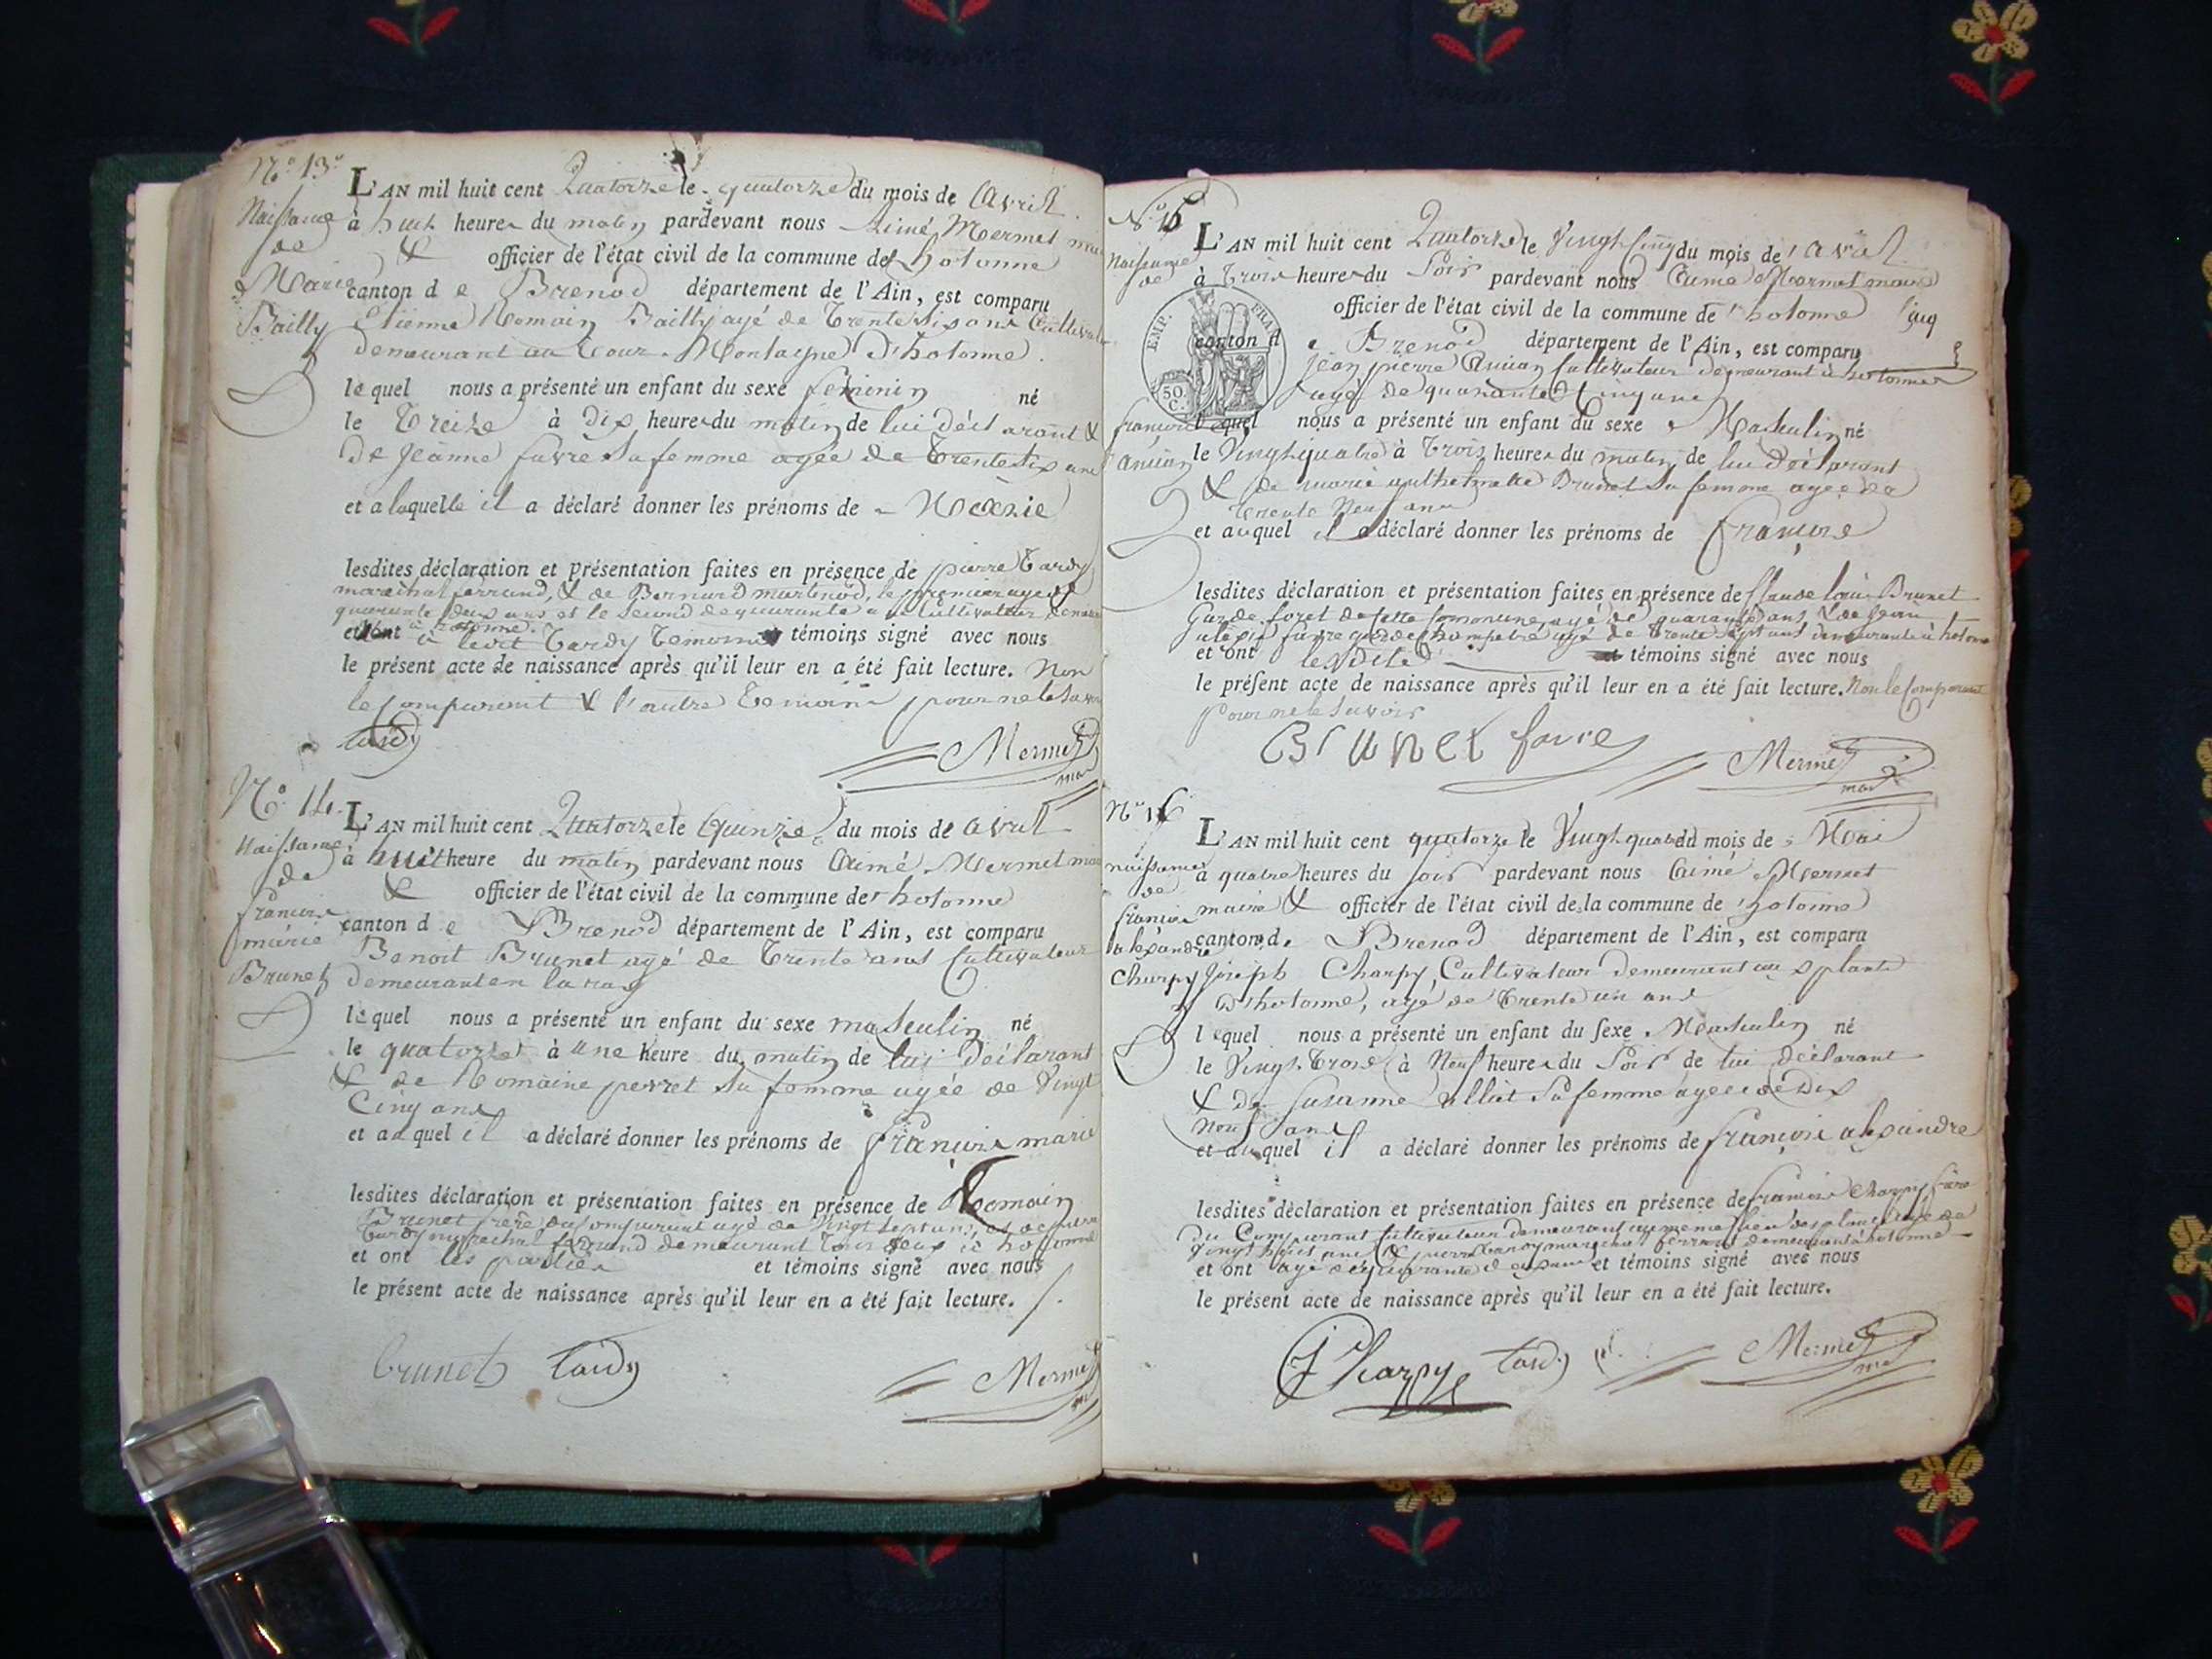 N.º 13.º
Naissance
de
Marie
Bailly
L'AN mil huit cent Quatorze le quatorze du mois de Avril
à huit heures du matin pardevant nous Aimé Mermet
& officier de l'état civil de la commune de hotonne
canton de Brenod département de l'Ain, est comparu
Etienne Romain Bailly agé de trente six ans Cultivateur
demeurant au Montagne d'hotonne.
lequel nous a présenté un enfant du sexe feminin né
le Treize à dix heures du matin de lui déclarant &
de Jeanne favre sa femme agée de trente six ans
et a laquelle il a déclaré donner les prénoms de Marie
lesdites déclaration et présentation faites en présence de pierre tardy
marechal ferrand, & de Bernard martinod, le premier agé de
quarante deux ans et le second de quarante ans Cultivateur
à hotonne.
et ont ledit tardy temoin témoins signé avec nous
le présent acte de naissance après qu'il leur en a été fait lecture. Non
le comparant & l'autre temoin pour ne le savoir
tardy
Mermet
N.º 14.
Naissance
de
françois
marie
Brunet
L'AN mil huit cent Quatorze le Quinze du mois de avril
à huit heure du matin pardevant nous Aimé Mermet
& officier de l'état civil de la commune de hotonne
canton de Brenod département de l'Ain, est comparu
Benoit Brunet agé de trente ans Cultivateur
demeurant en
lequel nous a présenté un enfant du sexe masculin né
le quatorze à une heure du matin de lui déclarant
& de Romaine perret sa femme agée de vingt
cinq ans
et auquel il a déclaré donner les prénoms de françois marie
lesdites déclaration et présentation faites en présence de Romain
Brunet frere du comparant agé de vingt sept ans, et de pierre
tardy marechal ferrand demeurant tous deux à hotonne
et ont les parties et témoins signé avec nous
le présent acte de naissance après qu'il leur en a été fait lecture.
brunet tardy
Mermet
N.º 15
Naissance
de
françois
Anian
EMP. FRAN
50 C.
L'AN mil huit cent Quatorze le vingt cinq du mois de avril
à trois heures du soir pardevant nous Aimé Mermet maire
officier de l'état civil de la commune de hotonne
canton de Brenod département de l'Ain, est comparu
jean pierre Anian cultivateur demeurant à hotonne
agé de quarante cinq ans
lequel nous a présenté un enfant du sexe Masculin né
le vingt quatre à trois heures du matin de lui déclarant
& de marie Brunet sa femme agée de
trente neuf ans
et auquel il a déclaré donner les prénoms de françois
lesdites déclaration et présentation faites en présence de Claude Brunet
Garde foret de cette commune, agé de quarante ans & de
favre garde Champetre agé de trente sept ans demeurants à hotonne
et ont lesdits témoins signé avec nous
le présent acte de naissance après qu'il leur en a été fait lecture. Non le Comparant
pour ne le savoir
Brunet favre
Mermet
N.º 16
naissance
de
françois
alexandre
Charpy
L'AN mil huit cent quatorze le vingt quatre du mois de Mai
à quatre heures du soir pardevant nous Aimé Mermet
maire & officier de l'état civil de la commune de hotonne
canton de Brenod département de l'Ain, est comparu
Joseph Charpy, Cultivateur demeurant
d'hotonne, agé de trente un ans
lequel nous a présenté un enfant du sexe Masculin né
le vingt trois à Neuf heures du soir de lui déclarant
& de Susanne sa femme agée de dix
neuf ans
et auquel il a déclaré donner les prénoms de françois alexandre
lesdites déclaration et présentation faites en présence de françois Charpy frère
du Comparant Cultivateur demeurant au meme lieu agé de
vingt huit ans & pierre tardy marechal ferrand demeurant à hotonne
et ont agé de quarante deux ans et témoins signé avec nous
le présent acte de naissance après qu'il leur en a été fait lecture.
J Charpy tardy
Mermet